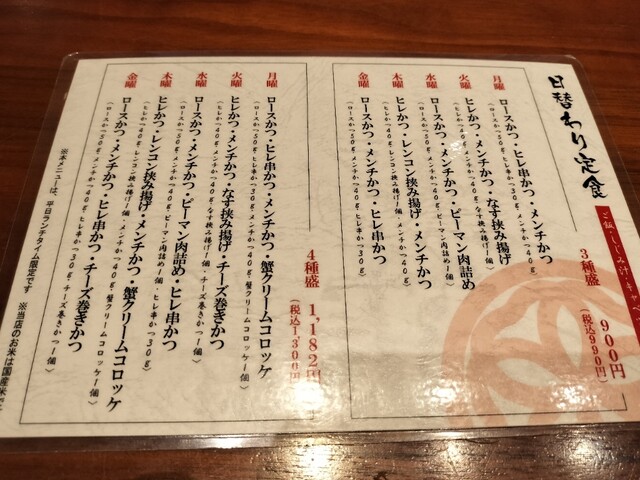 日替わり定食
ご飯・しじみ汁・キャベ
3種盛 900円
(税込990円)
月曜 ロースかつ・ヒレ串かつ・メンチかつ
(ロースかつ50g・ヒレ串かつ30g・メンチかつ40g)
火曜 ヒレかつ・メンチかつ・なす挟み揚げ
(ヒレかつ40g・メンチかつ40g・なす挟み揚げ1個)
水曜 ロースかつ・メンチかつ・ピーマン肉詰め
(ロースかつ50g・メンチかつ40g・ピーマン肉詰め1個)
木曜 ヒレかつ・レンコン挟み揚げ・メンチかつ
(ヒレかつ40g・レンコン挟み揚げ1個・メンチかつ40g)
金曜 ロースかつ・メンチかつ・ヒレ串かつ
(ロースかつ50g・メンチかつ40g・ヒレ串かつ30g)
4種盛 1,182円
(税込1,300円)
月曜 ロースかつ・ヒレ串かつ・メンチかつ・蟹クリームコロッケ
(ロースかつ50g・ヒレ串かつ30g・メンチかつ40g・蟹クリームコロッケ1個)
火曜 ヒレかつ・メンチかつ・なす挟み揚げ・チーズ巻きかつ
(ヒレかつ40g・メンチかつ40g・なす挟み揚げ1個・チーズ巻きかつ1個)
水曜 ロースかつ・メンチかつ・ピーマン肉詰め・ヒレ串かつ
(ロースかつ50g・メンチかつ40g・ピーマン肉詰め1個・ヒレ串かつ30g)
木曜 ヒレかつ・レンコン挟み揚げ・メンチかつ・蟹クリームコロッケ
(ヒレかつ40g・レンコン挟み揚げ1個・メンチかつ40g・蟹クリームコロッケ1個)
金曜 ロースかつ・メンチかつ・ヒレ串かつ・チーズ巻きかつ
(ロースかつ50g・メンチかつ40g・ヒレ串かつ30g・チーズ巻きかつ1個)
※本メニューは、平日ランチタイム限定です ※当店のお米は国産米で